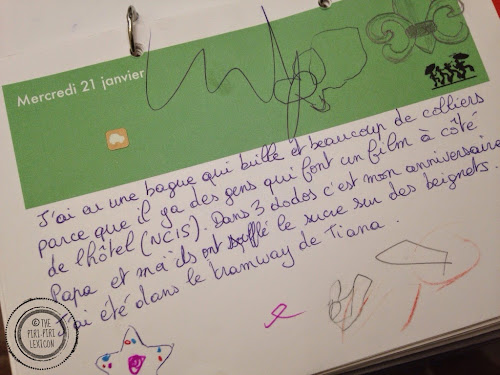 Mercredi 21 janvier
J'ai eu une bague qui brille et beaucoup de colliers
parce que il y a des gens qui font un film à côté
de l'hôtel (NCIS). Dans 3 dodos c'est mon anniversaire
Papa et moi ils ont soufflé le sucre sur des beignets.
J'ai été dans le tramway de Tiana.
© THE
PIRI-PIRI
LEXICON